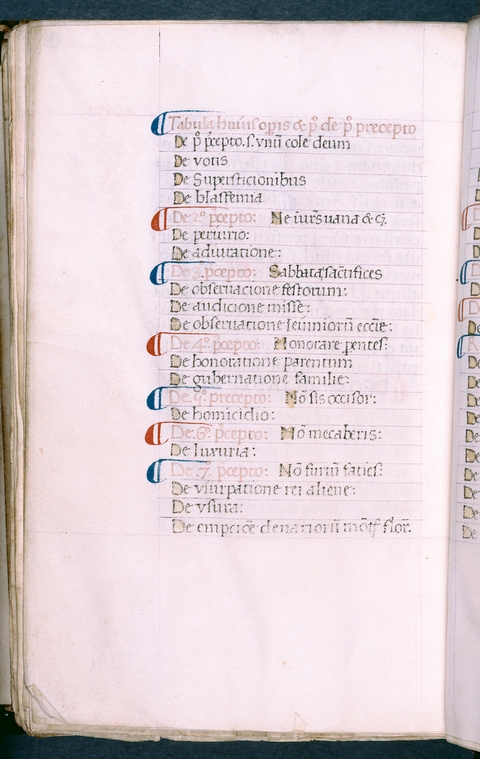 Tabula huius opis & p̊ de p̊ precepto
De p̊ p̄cepto. s. vnū cole deum
De votis
De Supersticionibus
De blasfemia
De 2º p̄cepto: Ne iur̄s uana & c̄.
De periurio:
De adiuratione:
De 3. p̄cepto: Sabbata sāctifices
De obseruacione festorum:
De audicione misse:
De obseruatione ieiuniorū eccīe:
De 4º p̄cepto: Honorare p̄entes:
De honoratione parentum
De gubernatione familie:
De. 5º. precepto: Nō sis occisor:
De homicidio:
De. 6º. p̄cepto: Nō mecaberis:
De luxuria:
De. 7. p̄cepto: Nō furtū facies:
De vsurpatione rei aliene:
De vsura:
De empciōe denariorū mōt̄ flor̄.